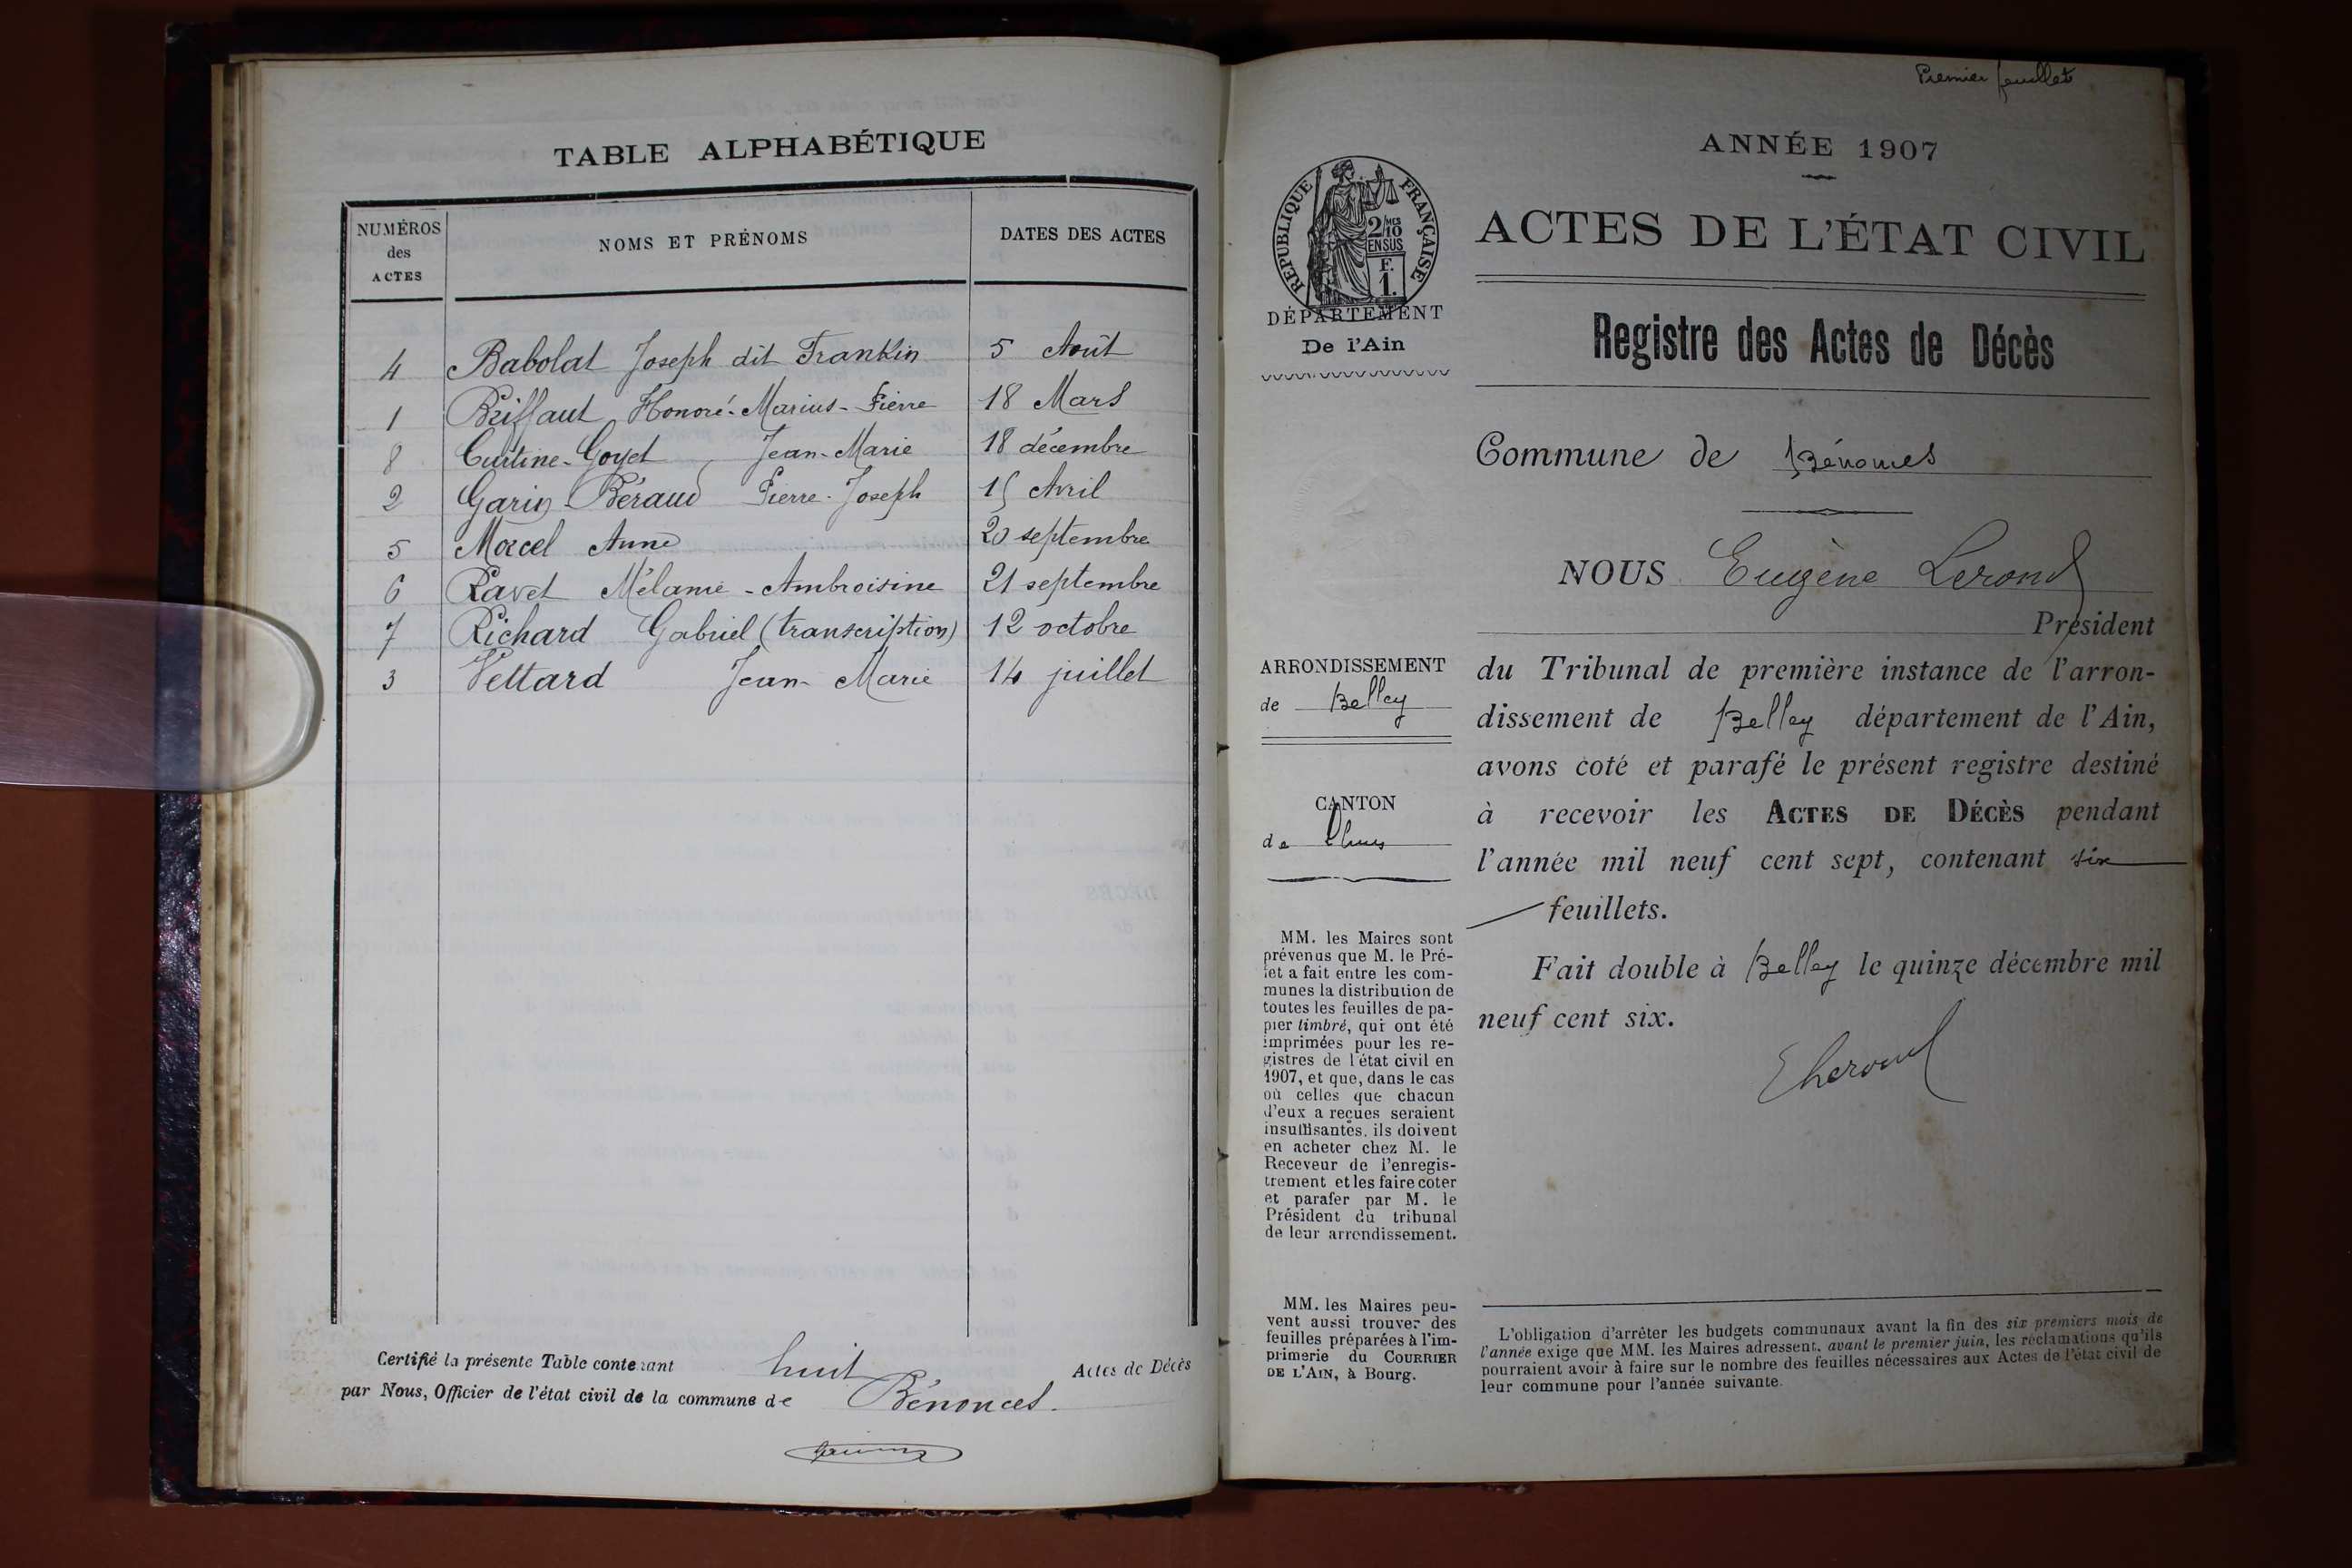 TABLE ALPHABÉTIQUE
NUMÉROS des ACTES NOMS ET PRÉNOMS DATES DES ACTES
4 Babolat Joseph dit Franklin 5 Août
1 Briffaut Honoré-Marius-Pierre 18 Mars
8 Curtine-Goyet, Jean-Marie 18 décembre
2 Garin-Béraud Pierre-Joseph 15 Avril
5 Morcel Anne 20 septembre
6 Ravet Mélanie-Ambroisine 21 septembre
7 Richard Gabriel (transcription) 12 octobre
3 Vettard Jean-Marie 14 juillet
Certifié la présente Table contenant huit Actes de Décès
par Nous, Officier de l'état civil de la commune de Bénonces.
Premier feuillet
ANNÉE 1907
RÉPUBLIQUE FRANÇAISE
2/10 MES
EN SUS
F.
1.
DÉPARTEMENT
De l'Ain
ACTES DE L'ÉTAT CIVIL
Registre des Actes de Décès
Commune de Bénonces
NOUS Eugène Lerond
Président
ARRONDISSEMENT
de Belley
CANTON
de
MM. les Maires sont
prévenus que M. le Pré-
fet a fait entre les com-
munes la distribution de
toutes les feuilles de pa-
pier timbré, qui ont été
imprimées pour les re-
gistres de l'état civil en
1907, et que, dans le cas
où celles que chacun
d'eux a reçues seraient
insuffisantes, ils doivent
en acheter chez M. le
Receveur de l'enregis-
trement et les faire coter
et parafer par M. le
Président du tribunal
de leur arrondissement.
MM. les Maires peu-
vent aussi trouver des
feuilles préparées à l'im-
primerie du COURRIER
DE L'AIN, à Bourg.
du Tribunal de première instance de l'arron-
dissement de Belley département de l'Ain,
avons coté et parafé le présent registre destiné
à recevoir les ACTES DE DÉCÈS pendant
l'année mil neuf cent sept, contenant six
feuillets.
Fait double à Belley le quinze décembre mil
neuf cent six.
ELerond
L'obligation d'arrêter les budgets communaux avant la fin des six premiers mois de
l'année exige que MM. les Maires adressent, avant le premier juin, les réclamations qu'ils
pourraient avoir à faire sur le nombre des feuilles nécessaires aux Actes de l'état civil de
leur commune pour l'année suivante.